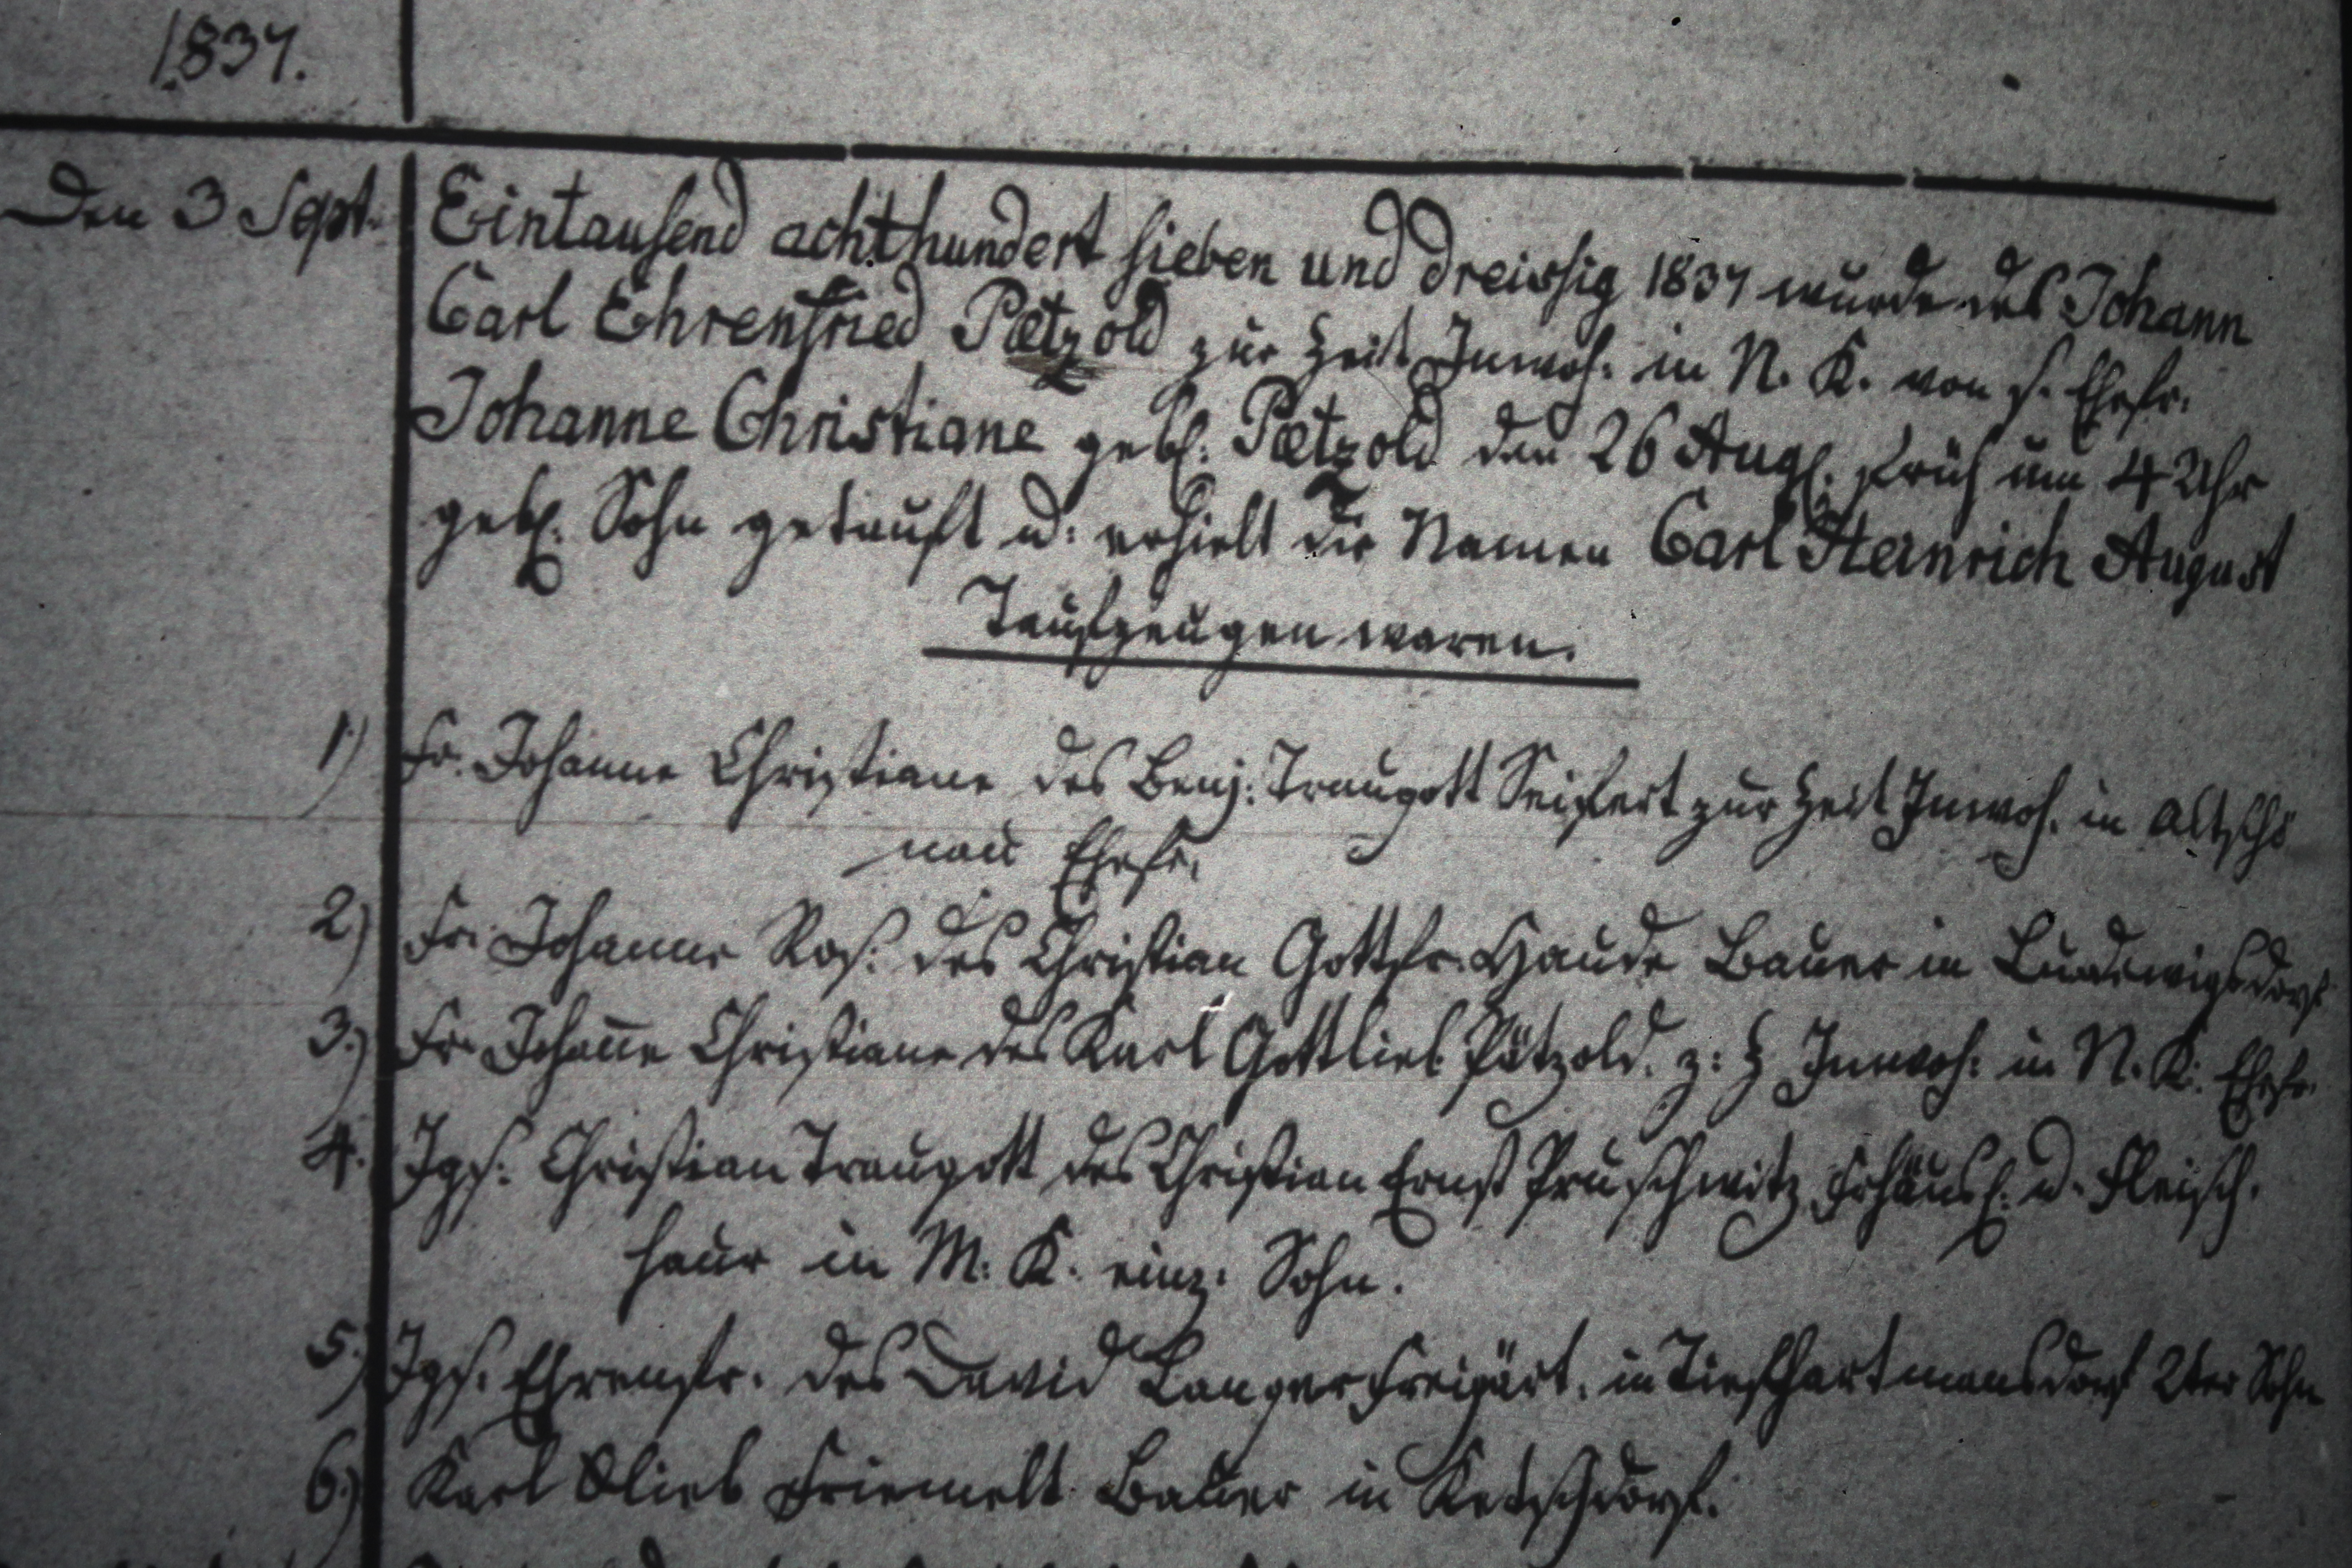 1837.
Den 3 Sept.
Eintausend achthundert sieben und dreissig 1837 wurde des Johann
Carl Ehrenfried Pætzold zur Zeit Inwoh. in N. K. von s. Ehefr.
Johanne Christiane geb. Pætzold den 26 Aug. früh um 4 Uhr
geb. Sohn getauft u. erhielt die Namen Carl Heinrich August
Taufzeugen waren.
1) Fr. Johanne Christiane des Benj. Traugott Seifert zur Zeit Inwoh. in Altschö
nau Ehefr.
2) Fr. Johanne Ros. des Christian Gottfr. Haude Bauer in Ludewigsdorf
3.) Fr. Johan̄e Christiane des Karl Gottlieb Pätzold. z: Z Inwoh: in N. K. Ehefr.
4. Igs: Christian Traugott des Christian Ernst Pruschwitz Frhäusl: u. Fleisch.
haur in M. K. einz. Sohn.
5.) Igs. Ehrenfr. des David Langer Freigärt. in Tiefhartmansdorf 2ter Sohn
6.) Karl Glieb Friemelt Bauer in Ketschdorf.